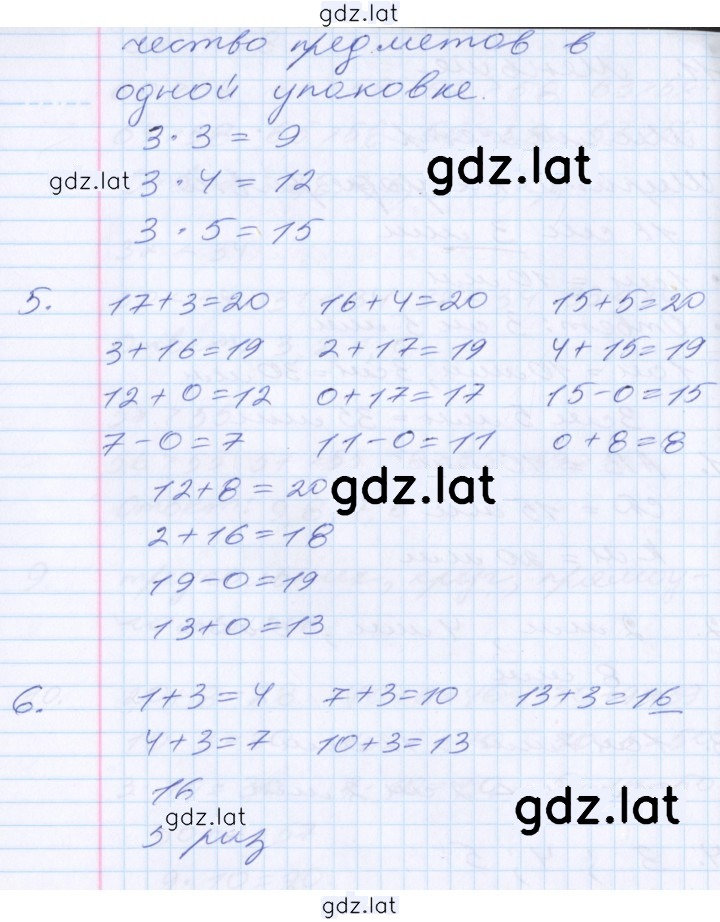 gdz.lat
чество предметов в
одной упаковке.
3 · 3 = 9
gdz.lat
gdz.lat
3 · 4 = 12
3 · 5 = 15
5. 17+3=20 16+4=20 15+5=20
3+16=19 2+17=19 4+15=19
12+0=12 0+17=17 15-0=15
7-0=7 11-0=11 0+8=8
12+8=20
gdz.lat
2+16=18
19-0=19
13+0=13
6. 1+3=4 7+3=10 13+3=16
4+3=7 10+3=13
16
gdz.lat
gdz.lat
5 раз
gdz.lat